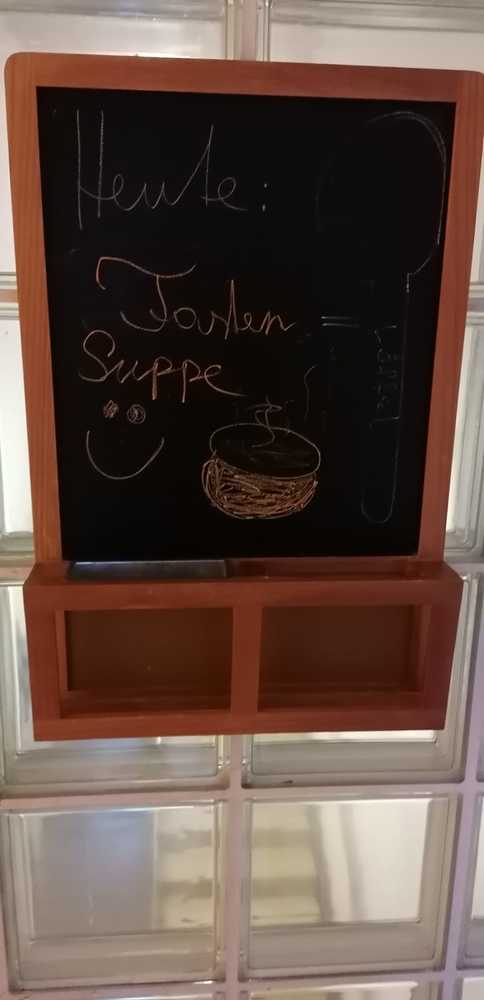 Heute:
Tasten
Suppe
Löffel